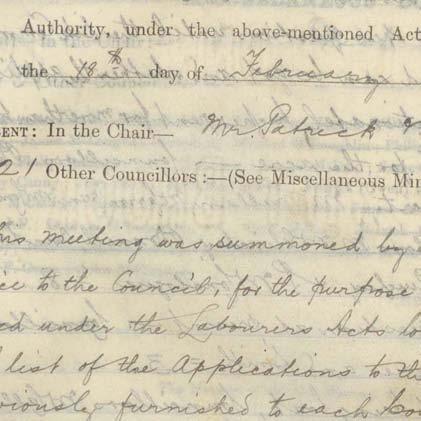 Authority, under the above-mentioned Act
the 18th day of February
ENT: In the Chair— Mr. Patrick
21 Other Councillors :—(See Miscellaneous Min
his meeting was summoned by
ice to the Council, for the purpose
ed under the Labourers Acts
list of the Applications to the
viously furnished to each